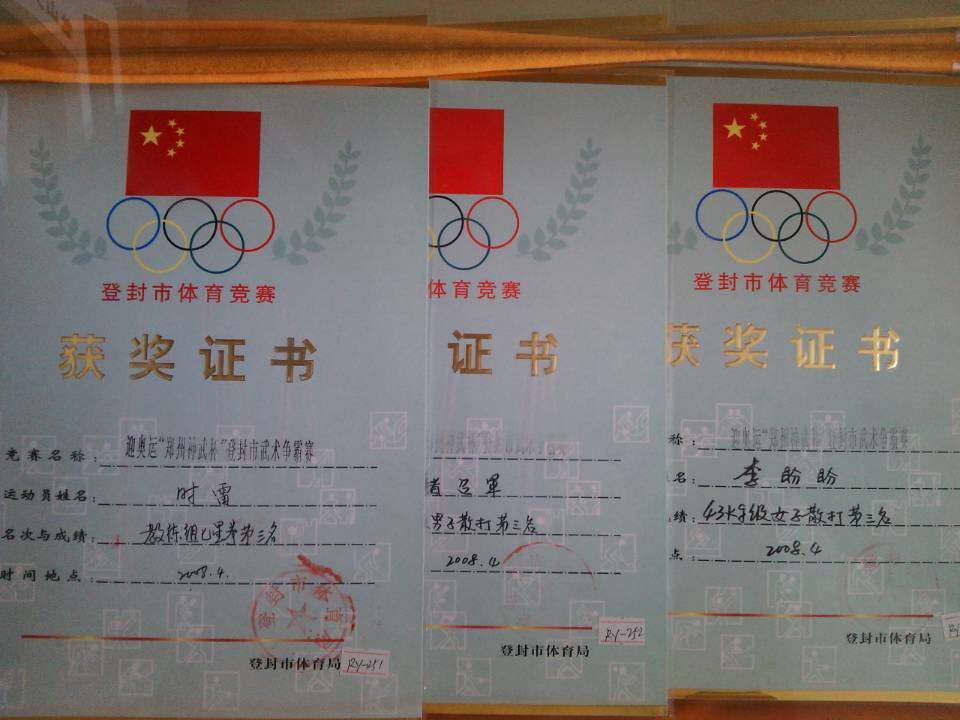 登封市体育竞赛
获奖证书
竞赛名称：迎奥运“郑州神武杯”登封市武术争霸赛
运动员姓名：时雷
名次与成绩：教练组乙黑券第三名
时间地点：2008.4.
登封市体育局
登封市体育局
RY-251
体育竞赛
证书
军
男子散打第三名
2008.4
登封市体育局
RY-252
登封市体育竞赛
获奖证书
称：迎奥运“郑州神武杯”登封市武术争霸赛
名：李盼盼
绩：43kg级女子散打第三名
点：2008.4
登封市体育局